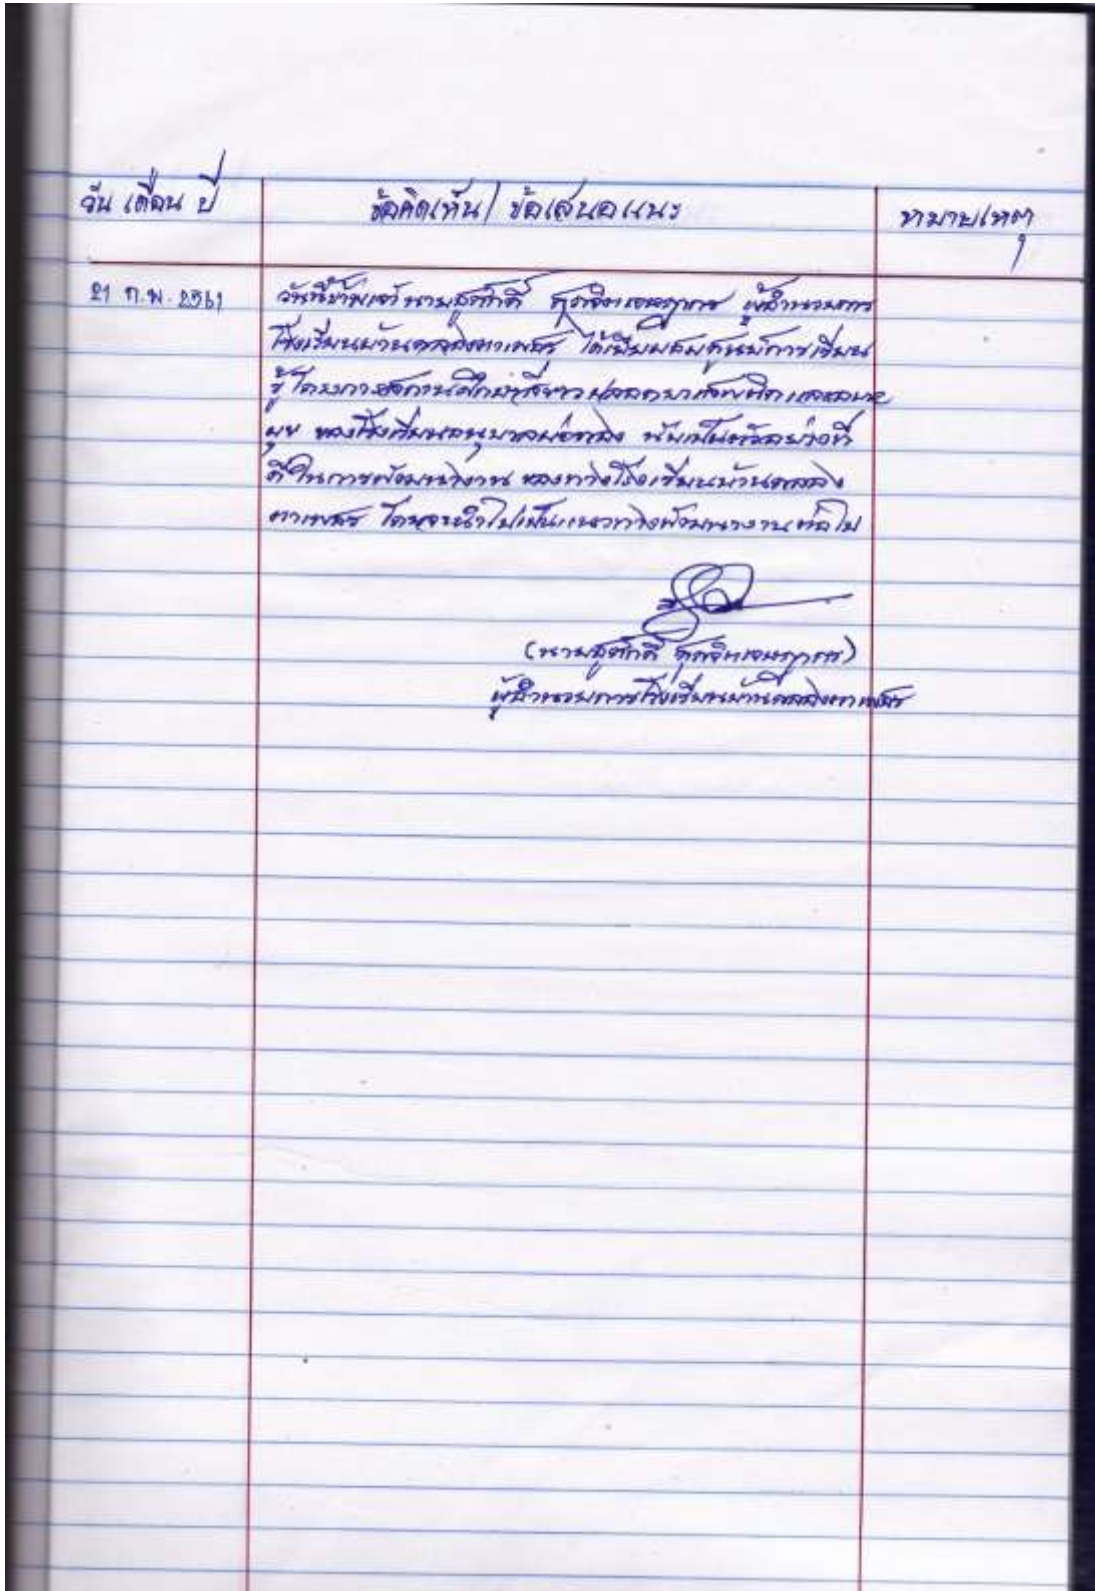 วัน เดือน ปี
ข้อคิดเห็น/ ข้อเสนอแนะ
หมายเหตุ
21 ก.พ. 2561
วันนี้ข้าพเจ้า นายสุรศักดิ์ ผู้อำนวยการ
โรงเรียนบ้านคลองตาเพชร ได้เยี่ยมชมศูนย์การเรียน
รู้ โครงการสถานศึกษาสีขาว ปลอดยาเสพติดและอบาย
มุข ของโรงเรียนอนุบาลบ่อทอง นับเป็นตัวอย่างที่
ดี ในการพัฒนางาน ของทางโรงเรียนบ้านคลอง
ตาเพชร โดยจะนำไปเป็นแนวทางพัฒนางานต่อไป
(นายสุรศักดิ์
ผู้อำนวยการโรงเรียนบ้านคลองตาเพชร